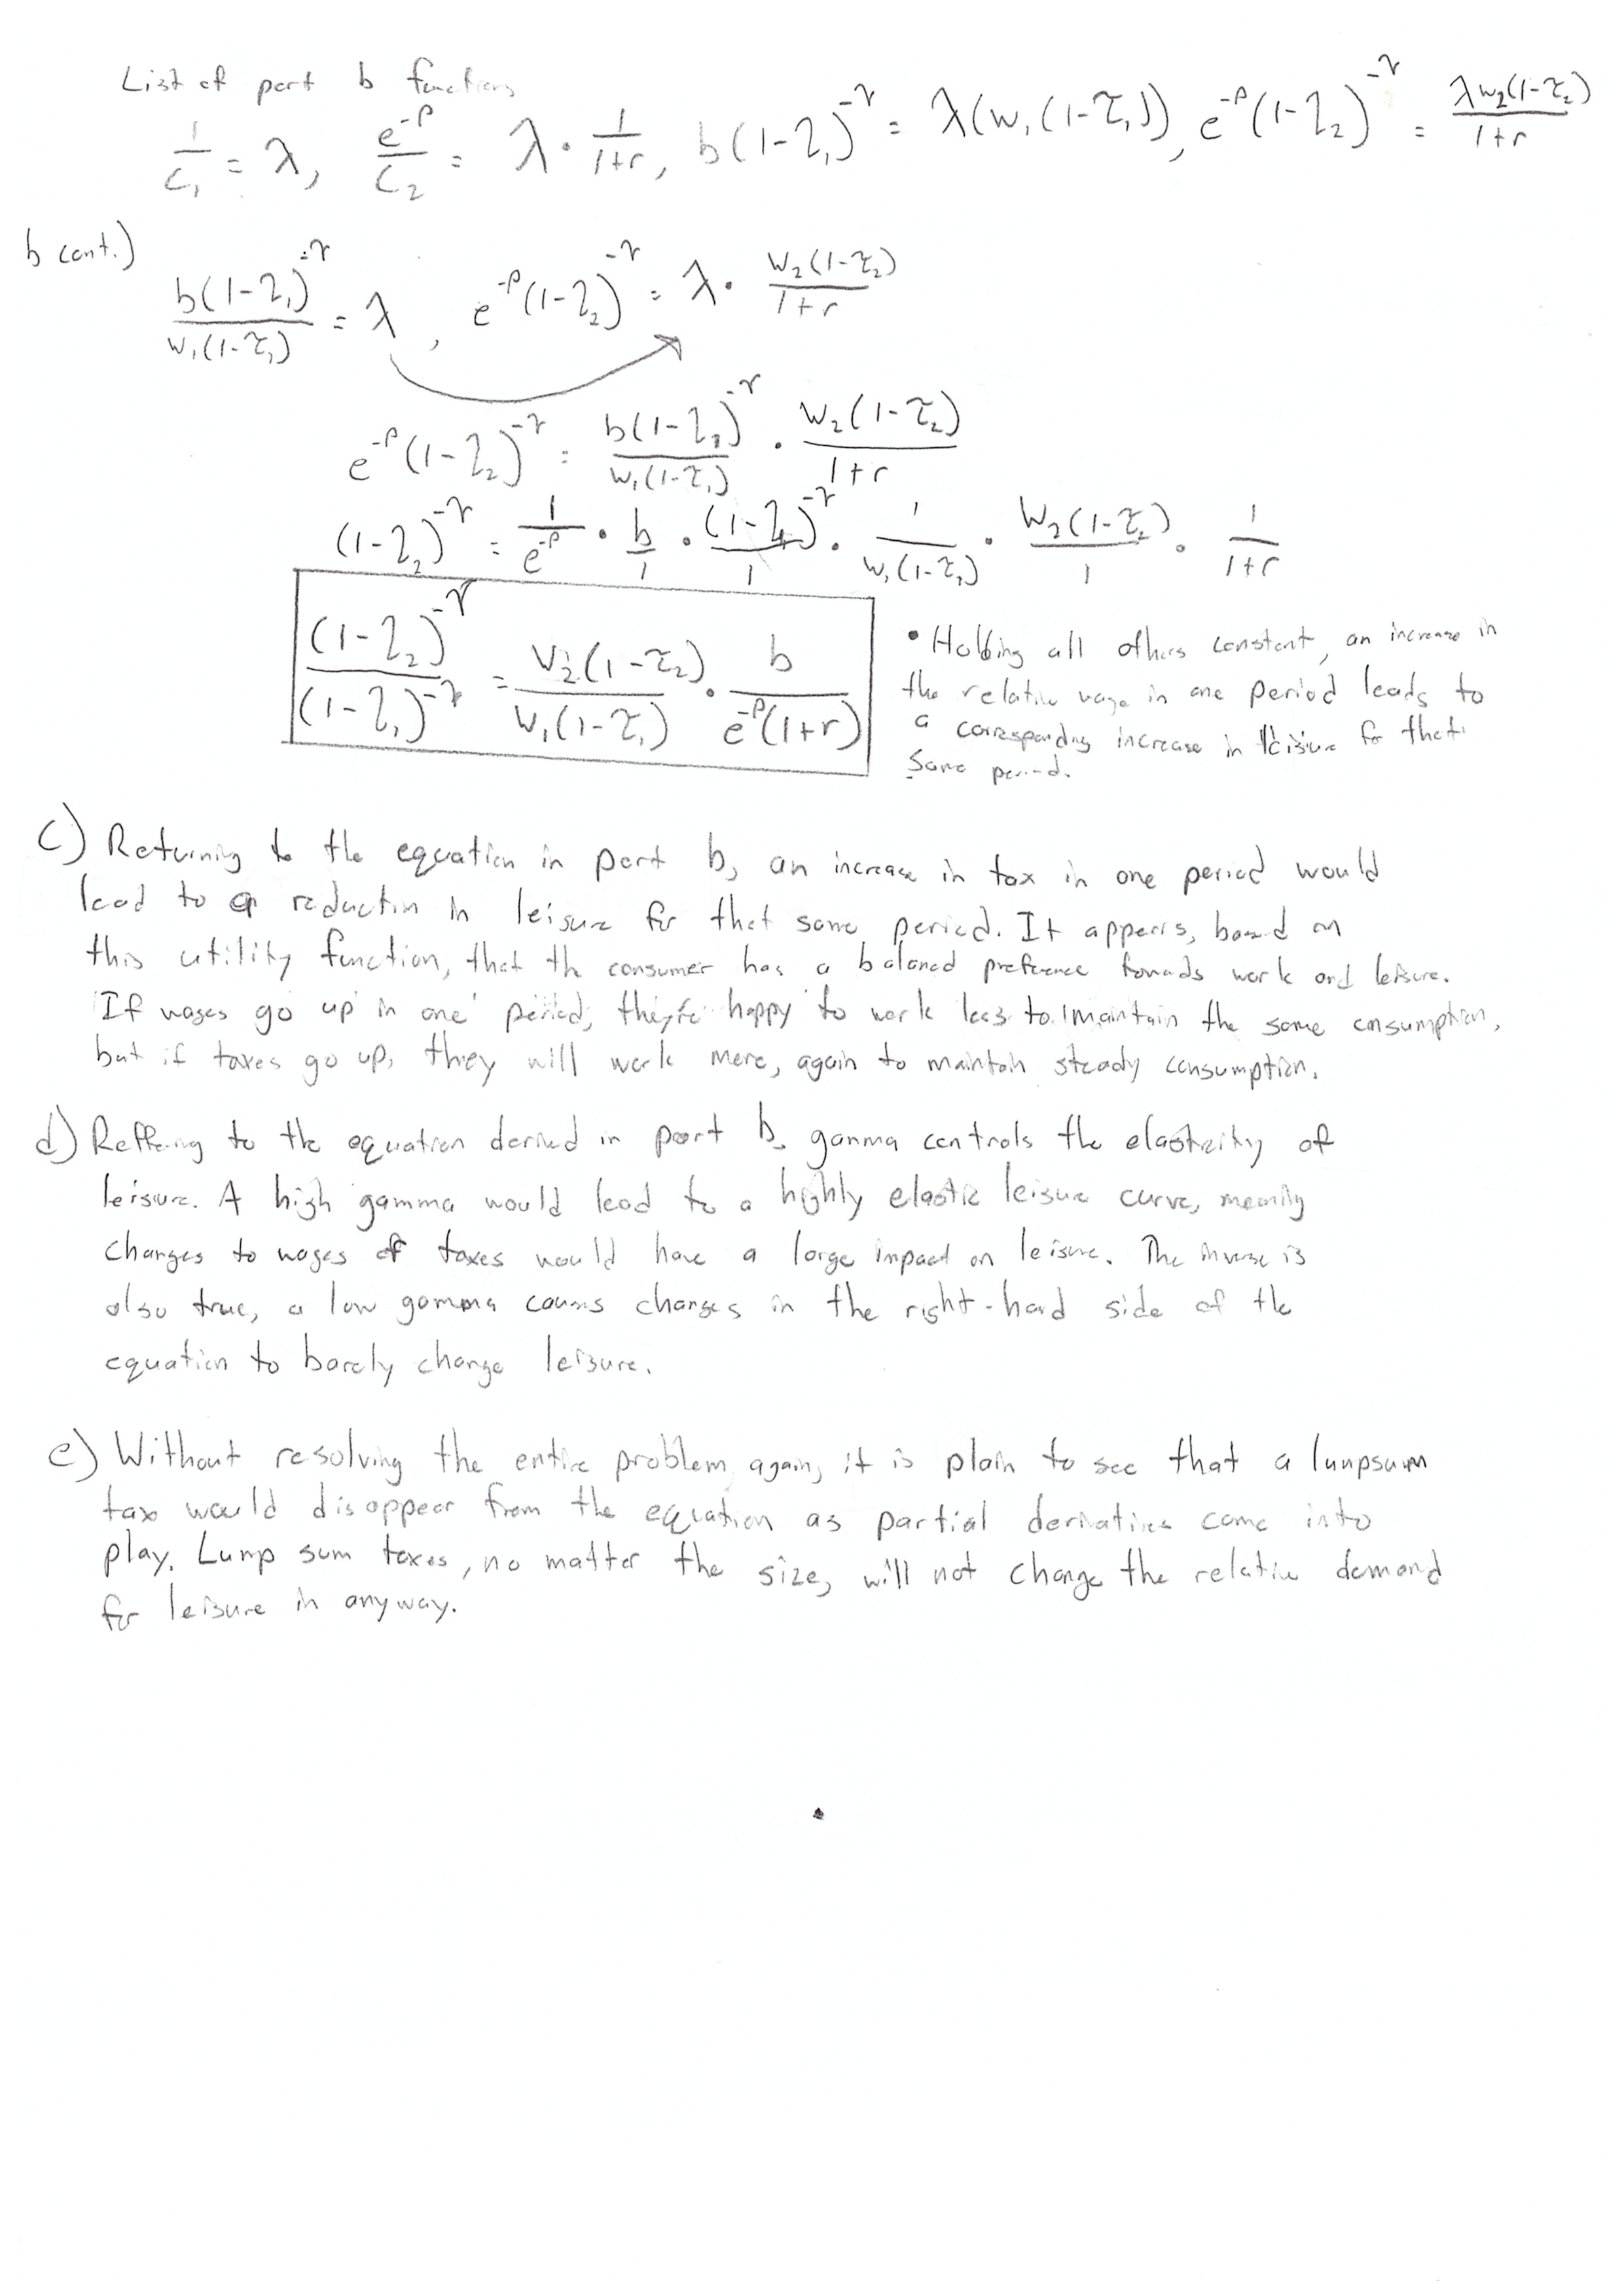 List of part b functions
1/C₁ = λ, e^-ρ/C₂ = λ · 1/1+r, b(1-l₁)^-γ = λ(w₁(1-τ₁)), e^-ρ(1-l₂)^-γ = λw₂(1-τ₂)/1+r
b cont.)
b(1-l₁)^-γ/w₁(1-τ₁) = λ, e^-ρ(1-l₂)^-γ = λ · w₂(1-τ₂)/1+r
e^-ρ(1-l₂)^-γ = b(1-l₁)^-γ/w₁(1-τ₁) · w₂(1-τ₂)/1+r
(1-l₂)^-γ = 1/e^-ρ · b/1 · (1-l₁)^-γ/1 · 1/w₁(1-τ₁) · w₂(1-τ₂)/1 · 1/1+r
(1-l₂)^-γ/(1-l₁)^-γ = w₂(1-τ₂)/w₁(1-τ₁) · b/e^-ρ(1+r)
• Holding all others constant, an increase in
the relative wage in one period leads to
a corresponding increase in leisure for that
same period.
c) Returning to the equation in part b, an increase in tax in one period would
lead to a reduction in leisure for that same period. It appears, based on
this utility function, that the consumer has a balanced preference towards work and leisure.
If wages go up in one period, they're happy to work less to maintain the same consumption,
but if taxes go up, they will work more, again to maintain steady consumption.
d) Reffering to the equation derived in part b, gamma controls the elasticity of
leisure. A high gamma would lead to a highly elastic leisure curve, meaning
changes to wages of taxes would have a large impact on leisure. The inverse is
also true, a low gamma causes changes in the right-hand side of the
equation to barely change leisure.
e) Without resolving the entire problem again, it is plain to see that a lumpsum
tax would disappear from the equation as partial derivatives come into
play. Lump sum taxes, no matter the size, will not change the relative demand
for leisure in anyway.